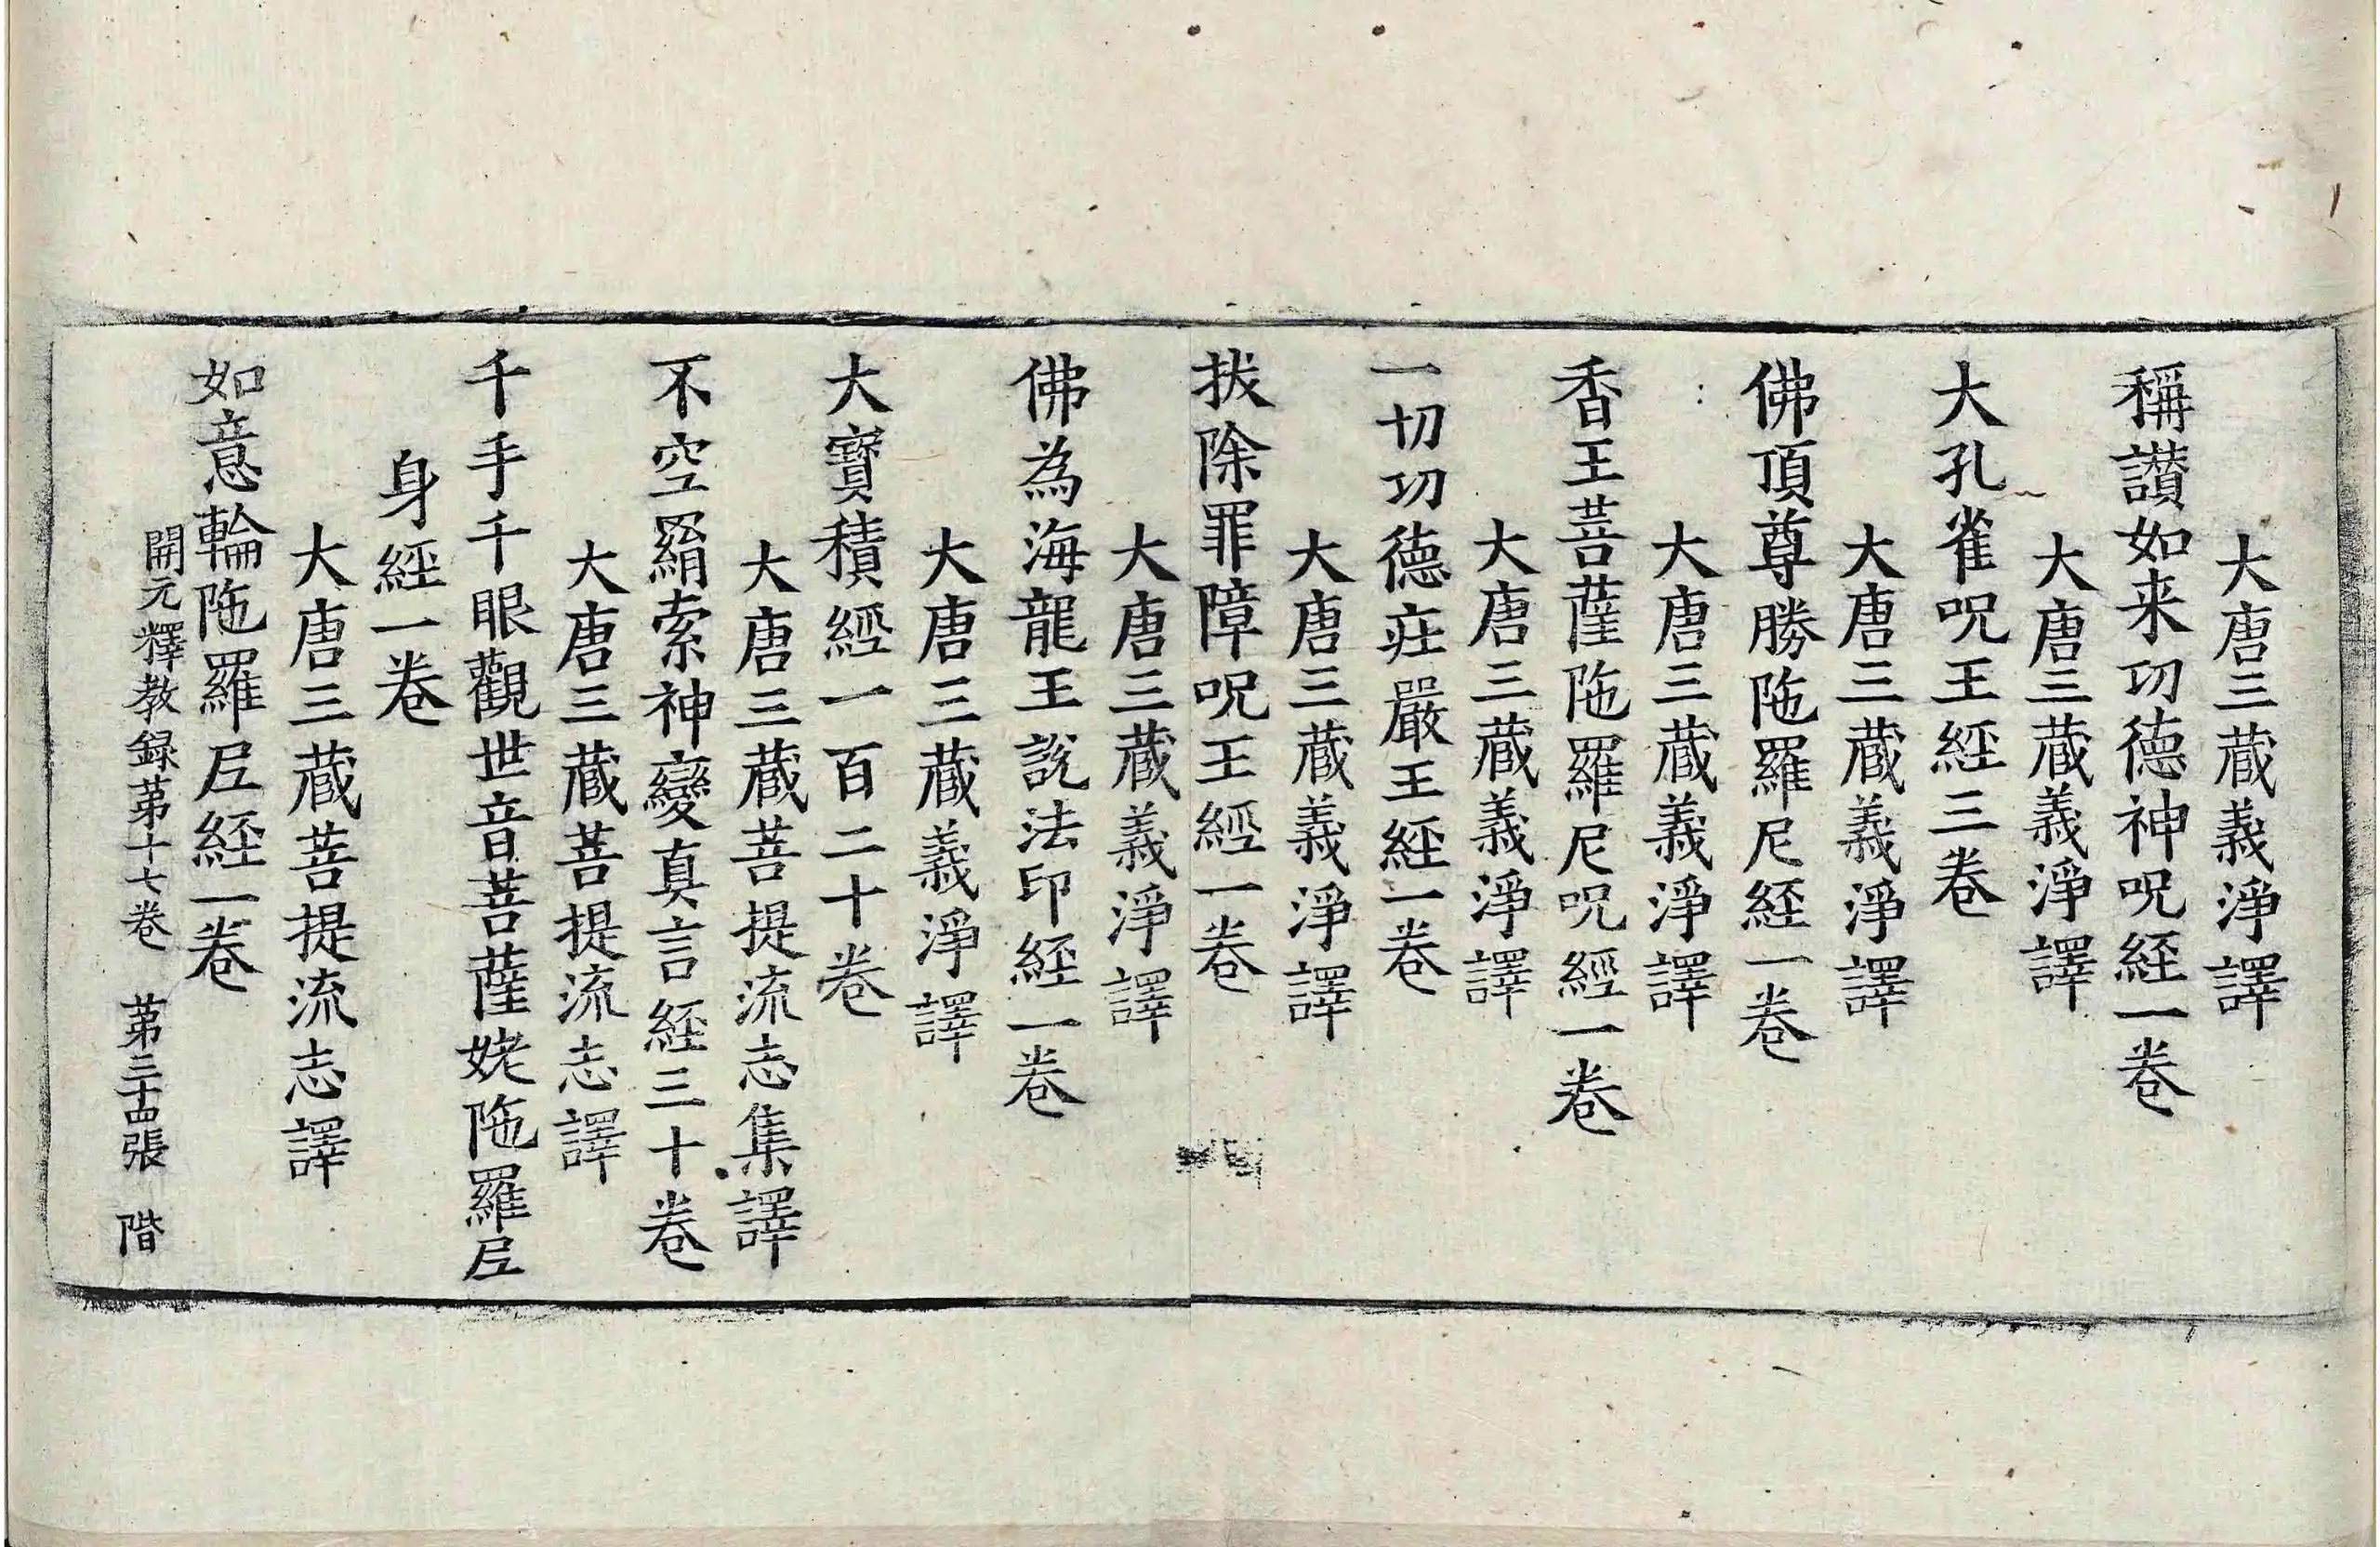 大唐三藏義淨譯
稱讃如来功德神呪経一卷
大唐三藏義淨譯
大孔雀呪王經三卷
大唐三藏義淨譯
佛頂尊勝陁羅尼経一卷
大唐三藏義淨譯
香王菩薩陁羅尼呪經一卷
大唐三藏義淨譯
一切功德莊嚴王経一卷
大唐三藏義淨譯
拔除罪障呪王經一卷
大唐三藏義淨譯
佛為海龍王說法印経一卷
大唐三藏義淨譯
大寳積經一百二十卷
大唐三藏菩提流志集譯
不空羂索神變真言経三十卷
大唐三藏菩提流志譯
千手千眼觀世音菩薩姥陁羅尼
身經一卷
大唐三藏菩提流志譯
如意輪陁羅尼経一卷
開元釋教録第十七卷　第三十四張　階